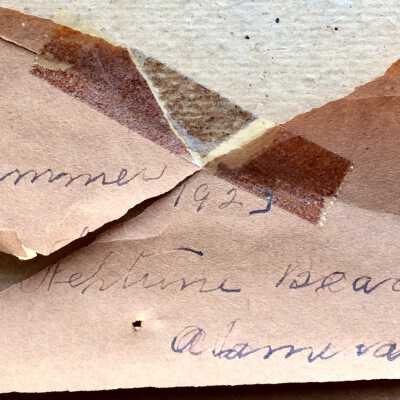 ummer 1923
Neptune Beac
Alameda